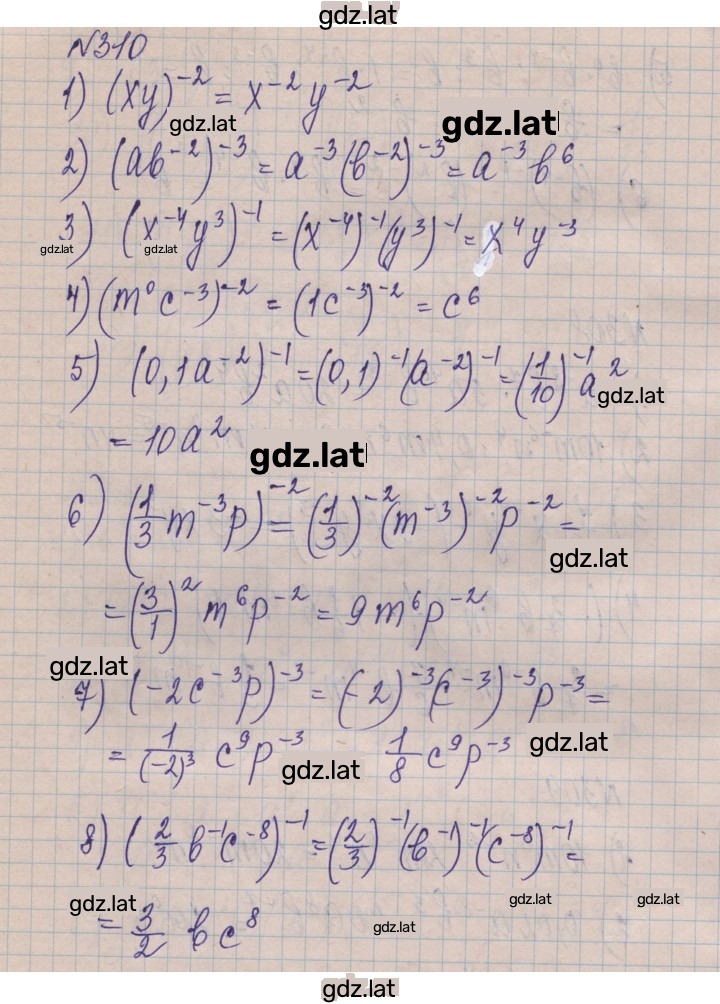 gdz.lat
№310
1) (xy)⁻² = x⁻² y⁻²
gdz.lat
gdz.lat
2) (ab⁻²)⁻³ = a⁻³(b⁻²)⁻³ = a⁻³ b⁶
3) (x⁻⁴y³)⁻¹ = (x⁻⁴)⁻¹(y³)⁻¹ = x⁴ y⁻³
gdz.lat gdz.lat
4) (m⁰c⁻³)⁻² = (1c⁻³)⁻² = c⁶
5) (0,1a⁻²)⁻¹ = (0,1)⁻¹(a⁻²)⁻¹ = (1/10)⁻¹a²
gdz.lat
= 10a²
gdz.lat
6) (1/3 m⁻³p)⁻² = (1/3)⁻²(m⁻³)⁻² p⁻² =
gdz.lat
= (3/1)² m⁶p⁻² = 9m⁶p⁻²
gdz.lat
7) (-2c⁻³p)⁻³ = (-2)⁻³(c⁻³)⁻³p⁻³ =
= 1/(-2)³ c⁹p⁻³ 1/8 c⁹p⁻³
gdz.lat
gdz.lat
8) (2/3 b⁻¹c⁻⁸)⁻¹ = (2/3)⁻¹(b⁻¹)⁻¹(c⁻⁸)⁻¹ =
gdz.lat gdz.lat gdz.lat
= 3/2 bc⁸
gdz.lat
gdz.lat